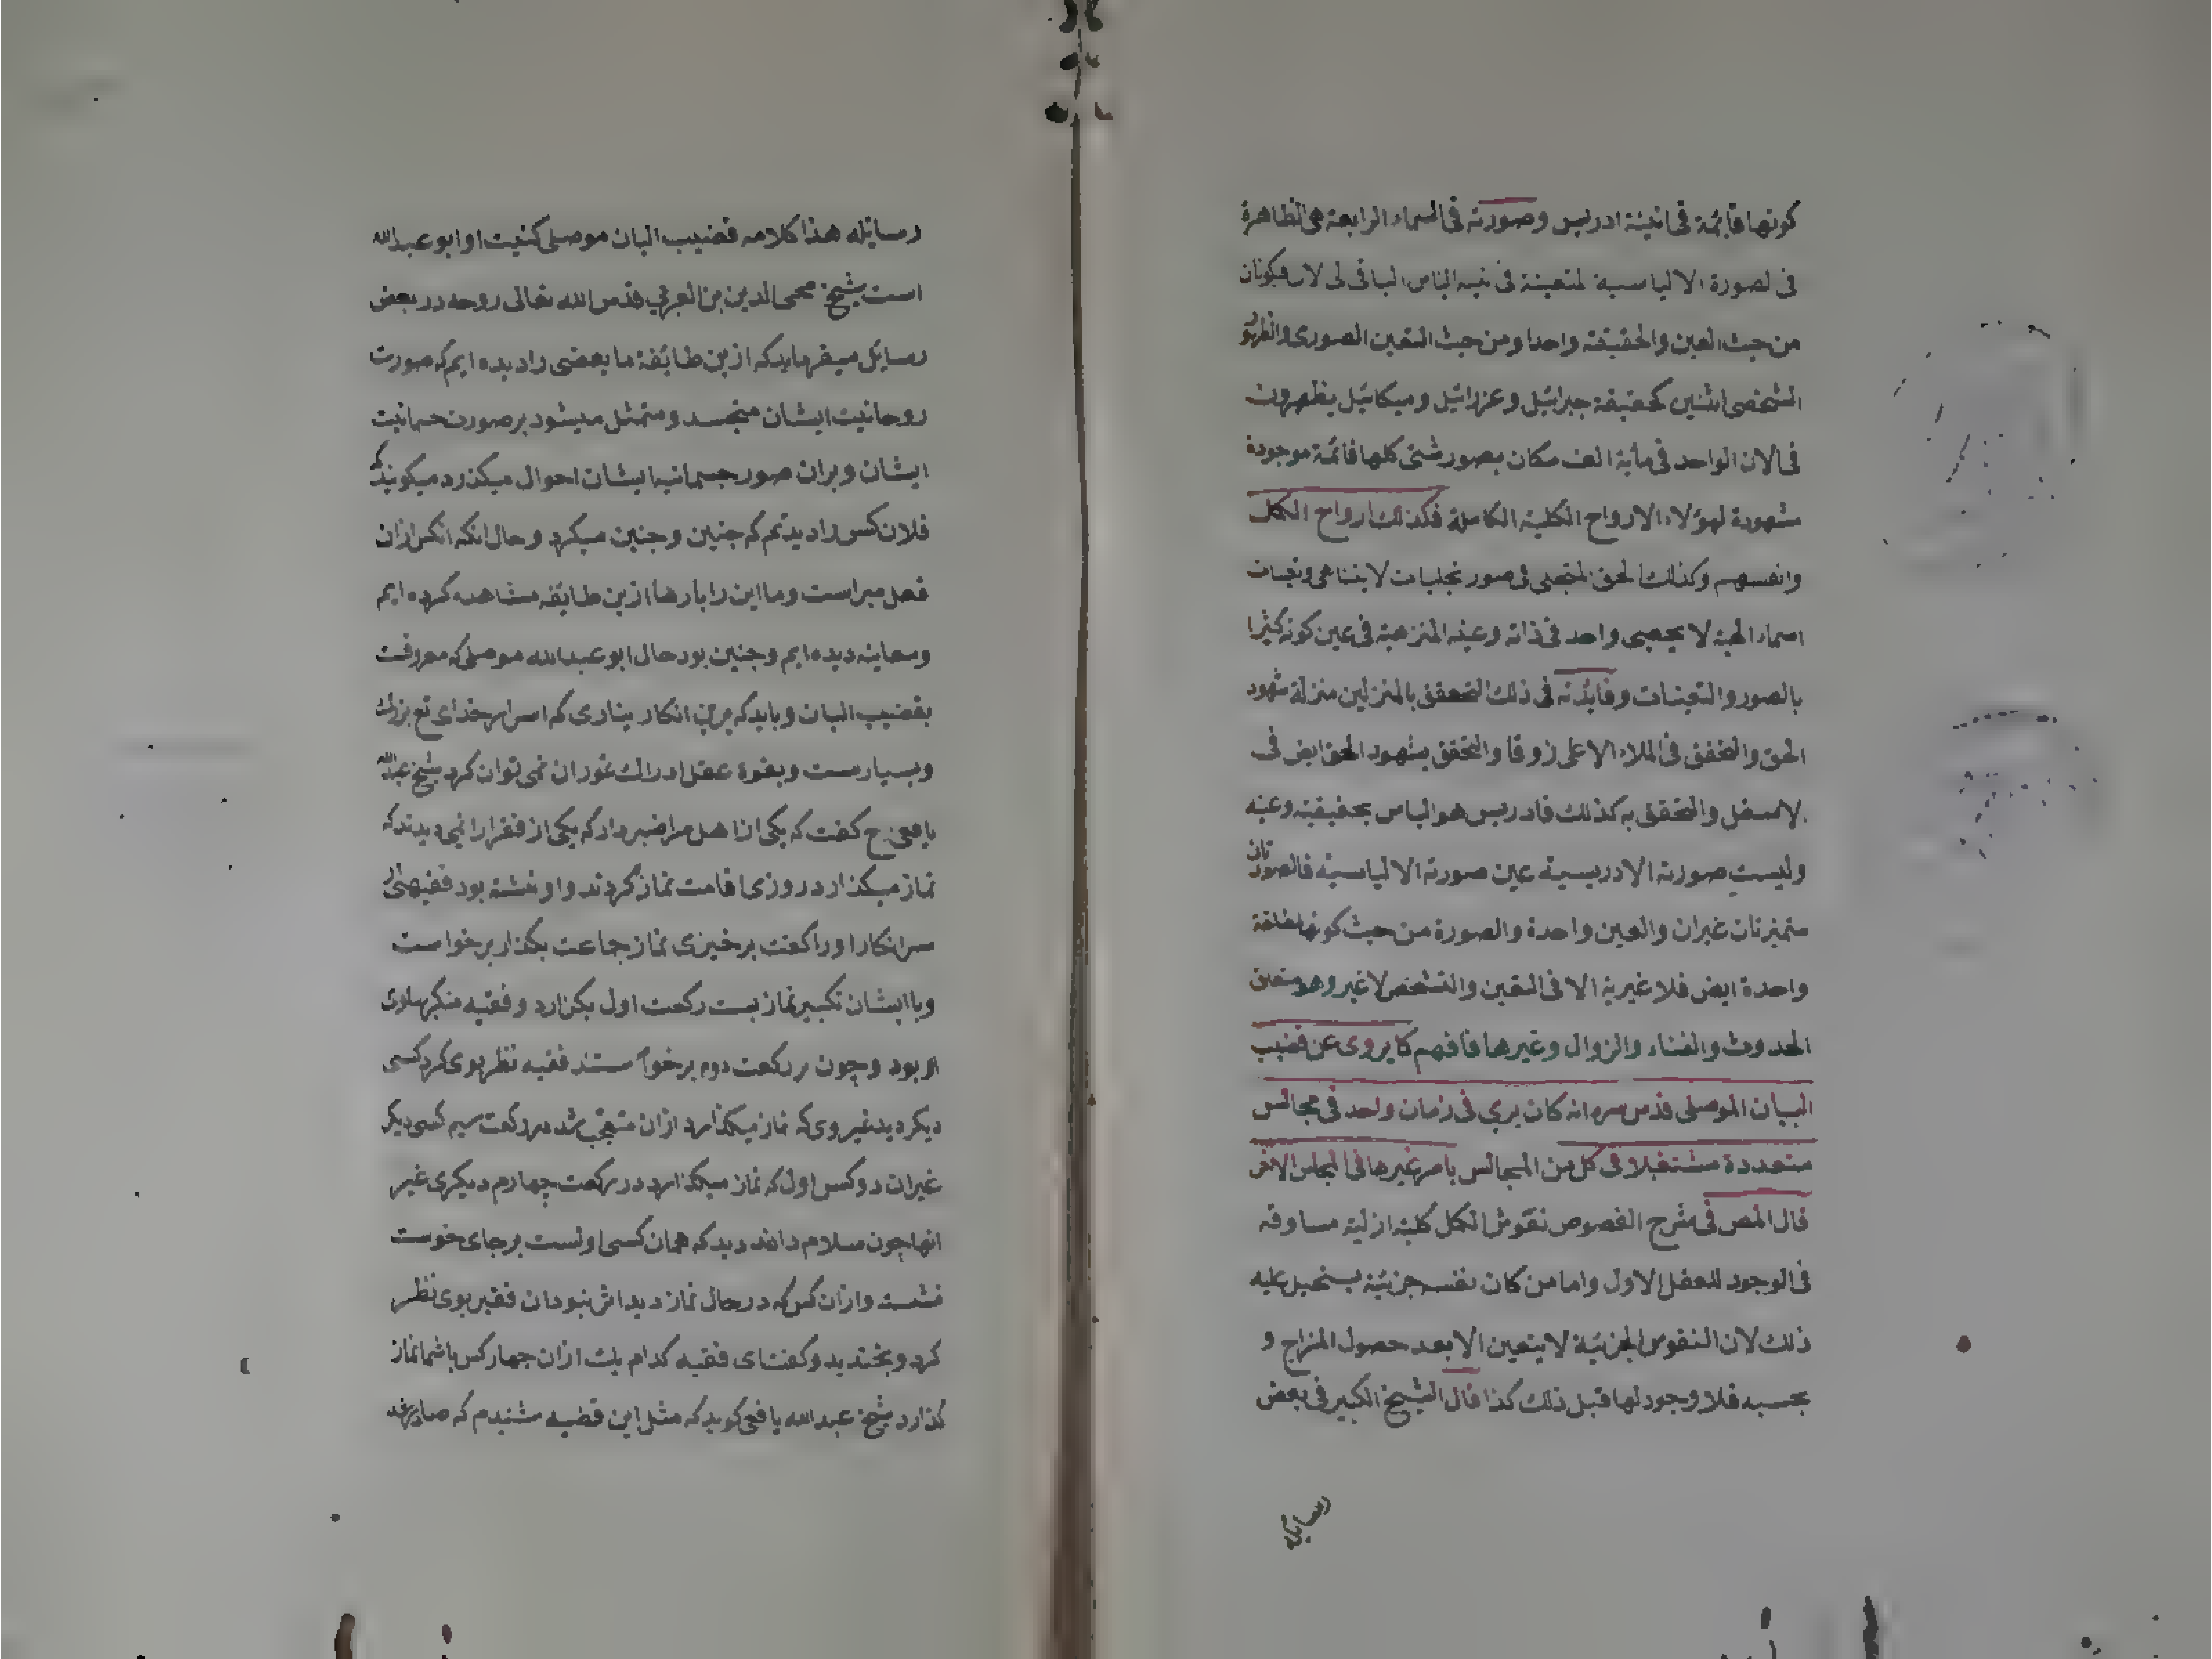 كونها قائمة فى انية ادريس وصورته فى السماء الرابعة هى الظاهرة
فى لصورة الالياسية لمتعينة فى نيه الياس الباقى لى لان فيكونان
من حيث العين والحقيقة واحدا ومن حيث التعين الصورى والظهور
الشخصى اثنين كحقيقة جبرائيل وعزرائيل وميكائيل يظهرون
فى الان الواحد فى مأية الف مكان بصور شتى كلها قائمة موجودة
مشهودة لهولاء الارواح الكلية الكاملة فكذلك ارواح الكمل
وانفسهم وكذلك الحق المتجلى فى صور تجليات لا يتناهى وتعينات
اسماء الهية لا يحصى واحد فى ذاته وعينه المنزهة فى عين كونه كثيرا
بالصور والتعينات وفايدته فى ذلك التحقق بالمنزلين منزلة شهود
الحق والتحقق فى الملاء الاعلى ذوقا والتحقق بشهود الحق ايض فى
لاسفل والتحقق به كذلك فادريس هو الياس بحقيقته وعينه
وليست صورته الادريسية عين صورته الالياسية فالصورتان
متميزتان غيران والعين واحدة والصورة من حيث كونها مطلقة
واحدة ايض فلا غيرية الا فى التعين والتشخص لا غير وهو متعين
الحدوث والفناء والزوال وغيرها فافهم كما يروى عن قضيب
البان الموصلى قدس سره انه كان يرى فى زمان واحد فى مجالس
متعددة مشتغلا فى كل من المجالس بامر غير ما فى المجلس الاخر
قال المص فى شرح الفصوص نفوس الكمل كلية ازلية مساوقة
فى الوجود للعقل الاول واما من كان نفسه جزئية يستحيل عليه
ذلك لان النفوس الجزئية لا يتعين الا بعد حصول المزاج و
بحسبه فلا وجود لها قبل ذلك كذا قال الشيخ الكبير فى بعض
رسايله
رسايله هذا كلامه قضيب البان موصلى كنيت او ابو عبد الله
است شيخ محى الدين بن العربي قدس الله تعالى روحه در بعض
رسايل ميفرمايد كه ازين طايفه ما بعضى را ديده ايم كه صورت
روحانيت ايشان متجسد و متمثل ميشود بر صورت جسمانيت
ايشان و بران صور جسمانيه ايشان احوال ميكذرد ميكويند كه
فلان كس را ديديم كه چنين و چنين ميكرد و حال انكه انكس ازان
فعل مبراست و ما اين را بارها ازين طايفه مشاهده كرده ايم
ومعاينه ديده ايم و چنين بود حال ابو عبد الله موصلى كه معروفست
بقضيب البان و بايد كه برين انكار نيارى كه اسرار خداى تع بزرك
وبسيارست و بقوة عقل ادراك غور ان نمى توان كرد شيخ عبد الله
يافعى ح كفت كه يكى از اهل مرا خبر داد كه يكى از فقرا را نمى ديدند كه
نماز ميكذارد روزى اقامت نماز كردند و او نشسته بود فقيهى از
سر انكار او را كفت برخيزى نماز جماعت بكذار برخواست
وبا ايشان تكبير نماز بست ركعت اول بكزارد و فقيه منكر پهلوى
او بود و چون در ركعت دوم برخواستند فقيه نظر بوى كرد كسى
ديكر ديد غير وى كه نماز ميكذارد ازان متعجب شد در ركعت سيم كسى ديكر
غير ان دو كس اول كه نماز ميكذارد در ركعت چهارم ديكرى غير
انها چون سلام دادند ديد كه همان كسى اولست بر جاى خوست
نشسته و ازان كس كه در حال نماز ديد اثر نبود ان فقير بوى نظر
كرد و بخنديد و كفت اى فقيه كدام يك ازان چهار كس با شما نماز
كذارد شيخ عبد الله يافعى كويد كه مثل اين قضيه شنيدم كه صادر شد